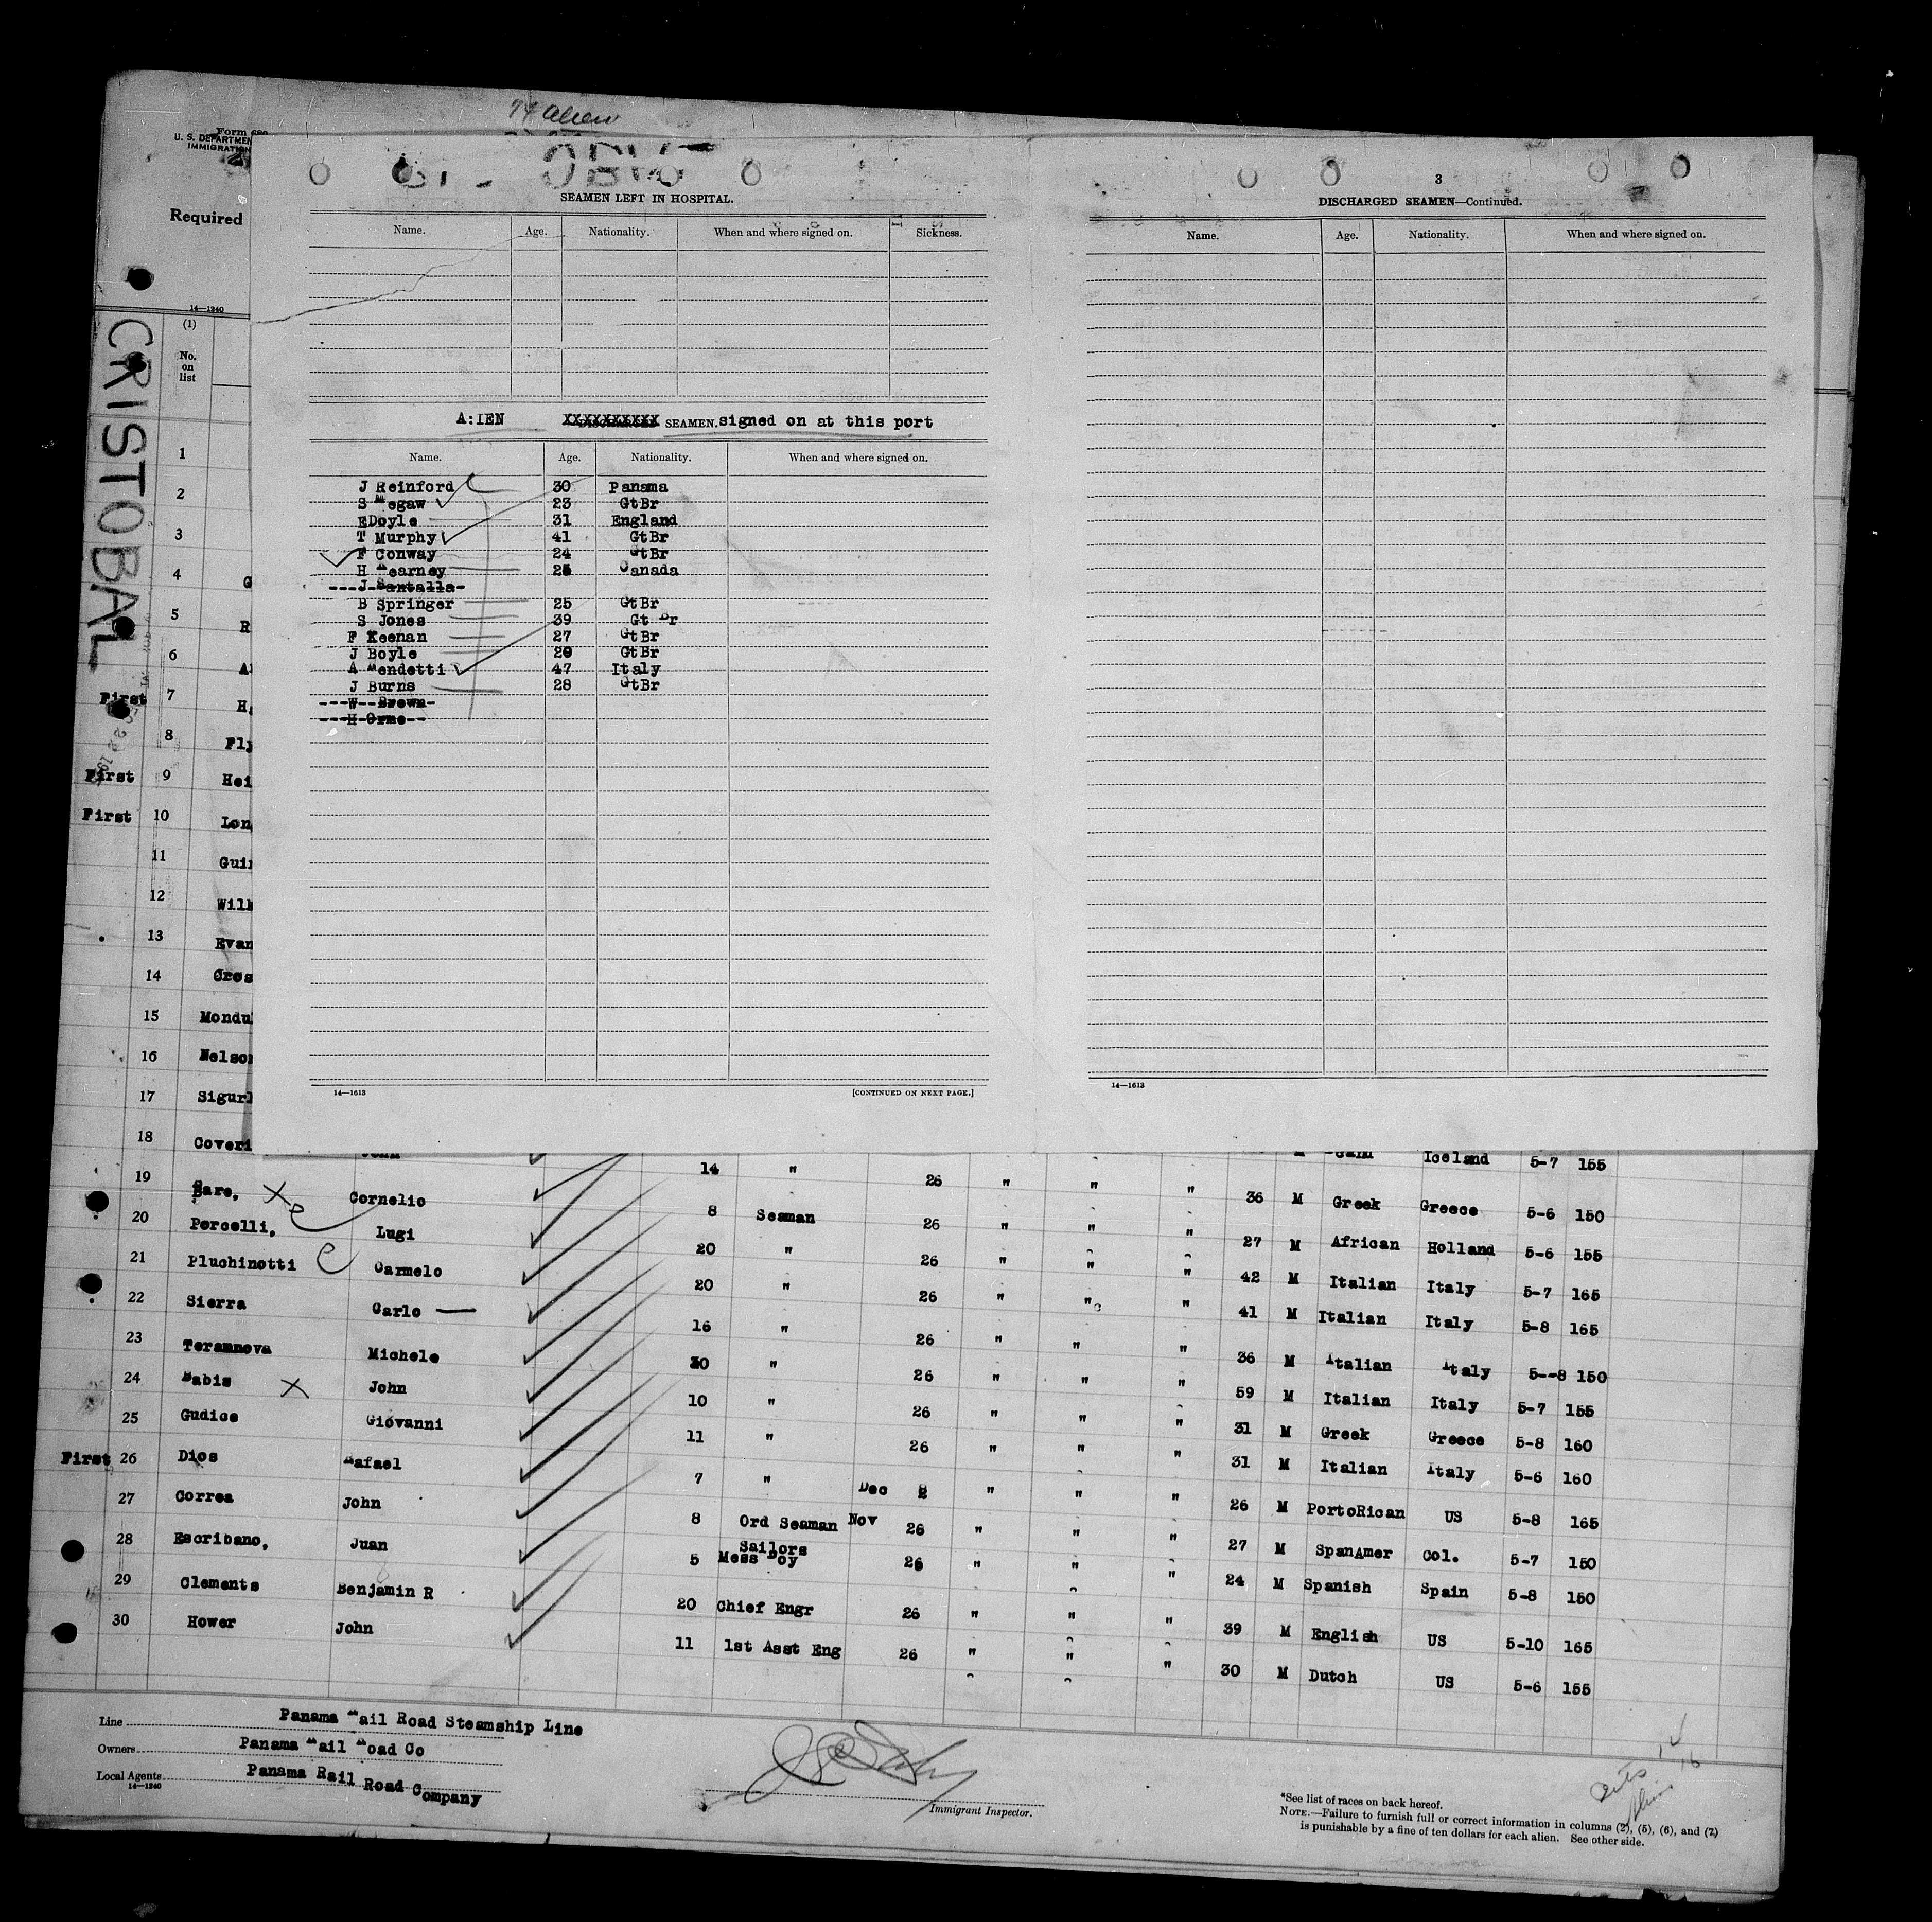 74 Alien
Form 680
U. S. DEPARTMEN
IMMIGRATION
Required
14—1240
(1)
No.
on
list
CRISTOBAL
1
2
3
4 G
5 R
6 Al
First 7 H
8 Fly
First 9 Hei
First 10 Lon
11 Gui
12 Wil
13 Evan
14 Cros
15 Mondu
16 Nelso
17 Sigur
18 Coveri
SEAMEN LEFT IN HOSPITAL.
Name. Age. Nationality. When and where signed on. Sickness.
A:IEN XXXXXXXXXX SEAMEN. signed on at this port
Name. Age. Nationality. When and where signed on.
J Reinford 30 Panama
S Megaw 23 GtBr
EDoyle 31 England
T Murphy 41 GtBr
F Conway 24 GtBr
H Kearney 25 Canada
---J-Santalla-
B Springer 25 GtBr
S Jones 39 Gt Br
F Keenan 27 GtBr
J Boyle 20 GtBr
A Mendetti 47 Italy
J Burns 28 GtBr
---W--Brown-
---H-Orme--
14—1613 [CONTINUED ON NEXT PAGE.]
3
DISCHARGED SEAMEN—Continued.
Name. Age. Nationality. When and where signed on.
14—1613
John 14 " 26 " " " M Iceland 5-7 155
19 Bare, Cornelio 8 Seaman 26 " " " 36 M Greek Greece 5-6 150
20 Porcelli, Lugi 20 " 26 " " " 27 M African Holland 5-6 155
21 Pluchinotti Carmelo 20 " 26 " " " 42 M Italian Italy 5-7 165
22 Sierra Carlo — 16 " 26 " " " 41 M Italian Italy 5-8 165
23 Teramnova Michele 30 " 26 " " " 36 M Italian Italy 5--8 150
24 Babis John 10 " 26 " " " 59 M Italian Italy 5-7 155
25 Gudice Giovanni 11 " 26 " " " 31 M Greek Greece 5-8 160
First 26 Dios Rafael 7 " Dec 2 " " " 31 M Italian Italy 5-6 160
27 Correa John 8 Ord Seaman Nov 26 " " " 26 M PortoRican US 5-8 165
28 Escribano, Juan 5 Sailors Mess Boy 26 " " " 27 M SpanAmer Col. 5-7 150
24 M Spanish Spain 5-8 150
29 Clements Benjamin R 20 Chief Engr 26 " " " 39 M English US 5-10 165
30 Hower John 11 1st Asst Eng 26 " " " 30 M Dutch US 5-6 155
Line Panama Rail Road Steamship Line
Owners Panama Rail Road Co
Local Agents Panama Rail Road Company
14—1240
Immigrant Inspector.
*See list of races on back hereof.
NOTE.—Failure to furnish full or correct information in columns (2), (5), (6), and (7)
is punishable by a fine of ten dollars for each alien. See other side.